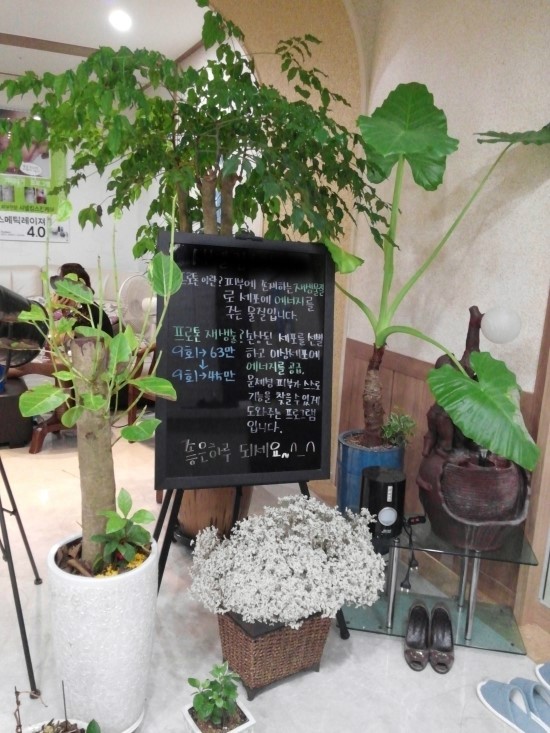 프로톤 이란? 피부에 존재하는 재생물질
로 세포에 에너지를
주는 물질입니다.
프로톤 재생술? 손상된 세포를 선별
9회→63만 하고 이상세포에
↓ 에너지를 공급,
9회→45만 문제성 피부가 스스로
기능을 찾을 수 있게
도와주는 프로그램
입니다.
좋은하루 되세요~^_^
스메틱레이저
4.0